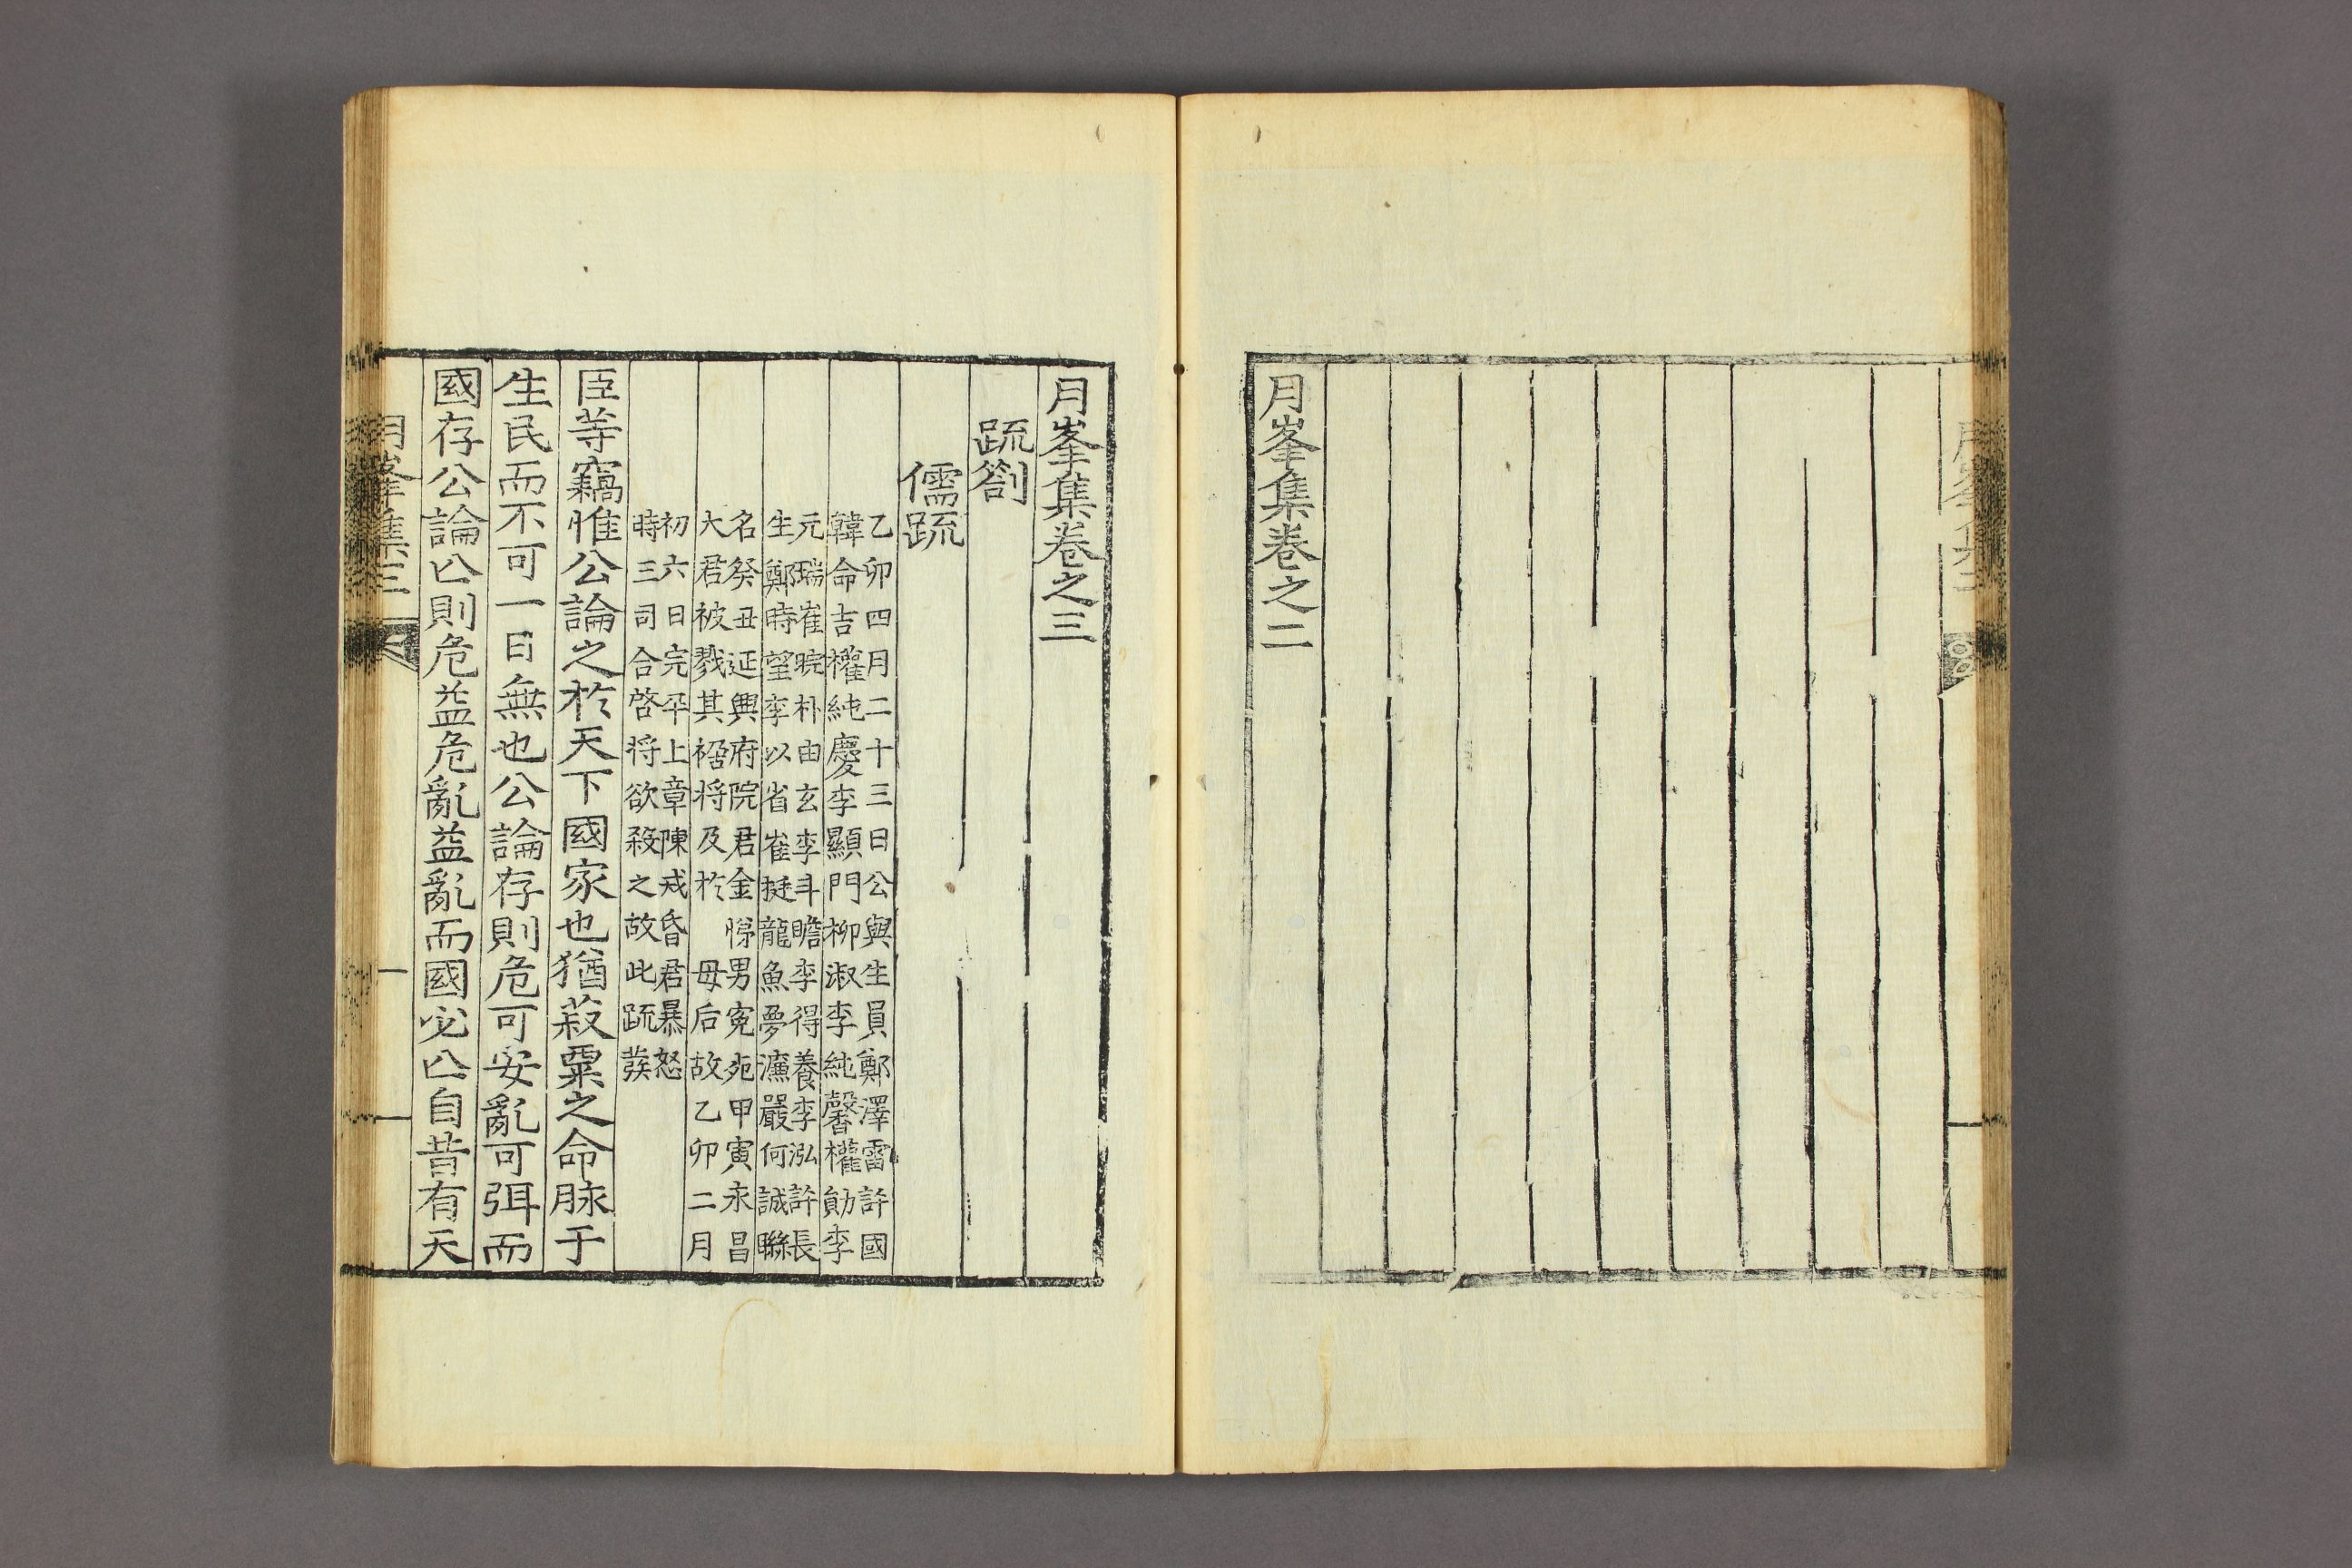 月峯集卷之二
月峯集卷之三
疏劄
儒疏
乙卯四月二十三日公與生員鄭澤雷許國
韓命吉權純慶李顯門柳淑李純馨權勛李
元瑞崔晥朴由玄李斗瞻李得養李泓許長
生鄭時望李以省崔挺龍魚夢濂嚴何誠聯
名癸丑延興府院君金悌男寃死甲寅永昌
大君被戮其禍將及於 母后故乙卯二月
初六日完平上章陳戒昏君暴怒
時三司合啓將欲殺之故此疏發
臣等竊惟公論之於天下國家也猶菽粟之命脉于
生民而不可一日無也公論存則危可安亂可弭而
國存公論亾則危益危亂益亂而國必亾自昔有天
月峯集三